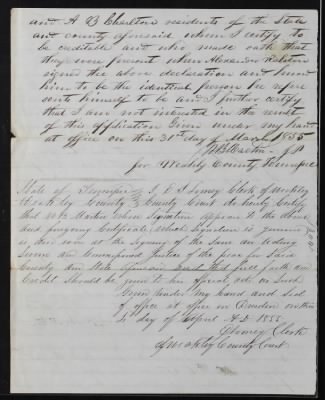 and A B Charlton residents of the State
and county aforesaid whom I certify to
be creditable and who made oath that
they were present when Alexander
signed the above declaration and know
him to be the identical person he repre
sents himself to be and I further certify
that I am not interested in the result
of this application Given under my hand
at office on this 31st day of March 1855
Martin J P
for Weakly County Tennessee
State of Tennessee
Weakley County County Court do hereby Certify
that Wm Martin whose signature appears to the above
and foregoing Certificate, which signature is genuine
is and was at the signing of the same an acting
Justice of the peace for said
County and State aforesaid and that full faith and
Credit should be given to his official acts as such
Given Under my hand and Seal
of office at office in Dresden on this
4th day of April A D 1855
Clerk
of Weakley County Court